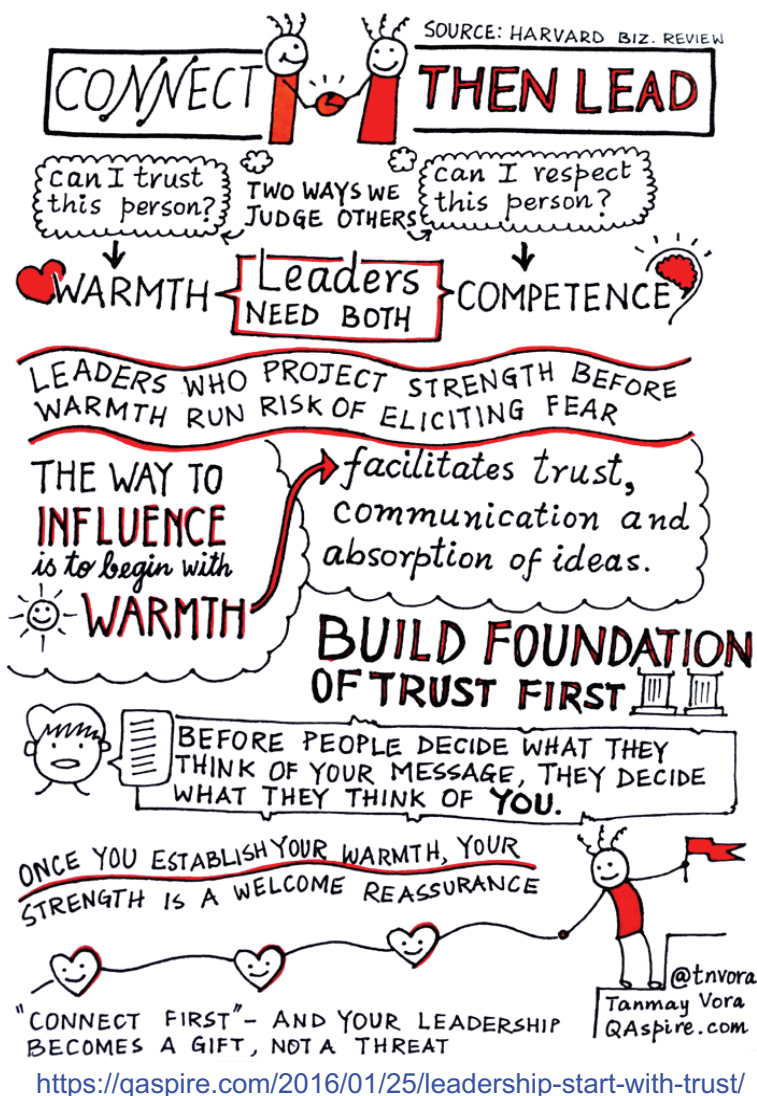 SOURCE: HARVARD BIZ. REVIEW
CONNECT THEN LEAD
can I trust
this person?
TWO WAYS WE
JUDGE OTHERS
can I respect
this person?
WARMTH
Leaders
NEED BOTH
COMPETENCE
LEADERS WHO PROJECT STRENGTH BEFORE
WARMTH RUN RISK OF ELICITING FEAR
THE WAY TO
INFLUENCE
is to begin with
WARMTH
facilitates trust,
communication and
absorption of ideas.
BUILD FOUNDATION
OF TRUST FIRST
BEFORE PEOPLE DECIDE WHAT THEY
THINK OF YOUR MESSAGE, THEY DECIDE
WHAT THEY THINK OF YOU.
ONCE YOU ESTABLISH YOUR WARMTH, YOUR
STRENGTH IS A WELCOME REASSURANCE
"CONNECT FIRST" - AND YOUR LEADERSHIP
BECOMES A GIFT, NOT A THREAT
@tnvora
Tanmay Vora
QAspire.com
https://qaspire.com/2016/01/25/leadership-start-with-trust/